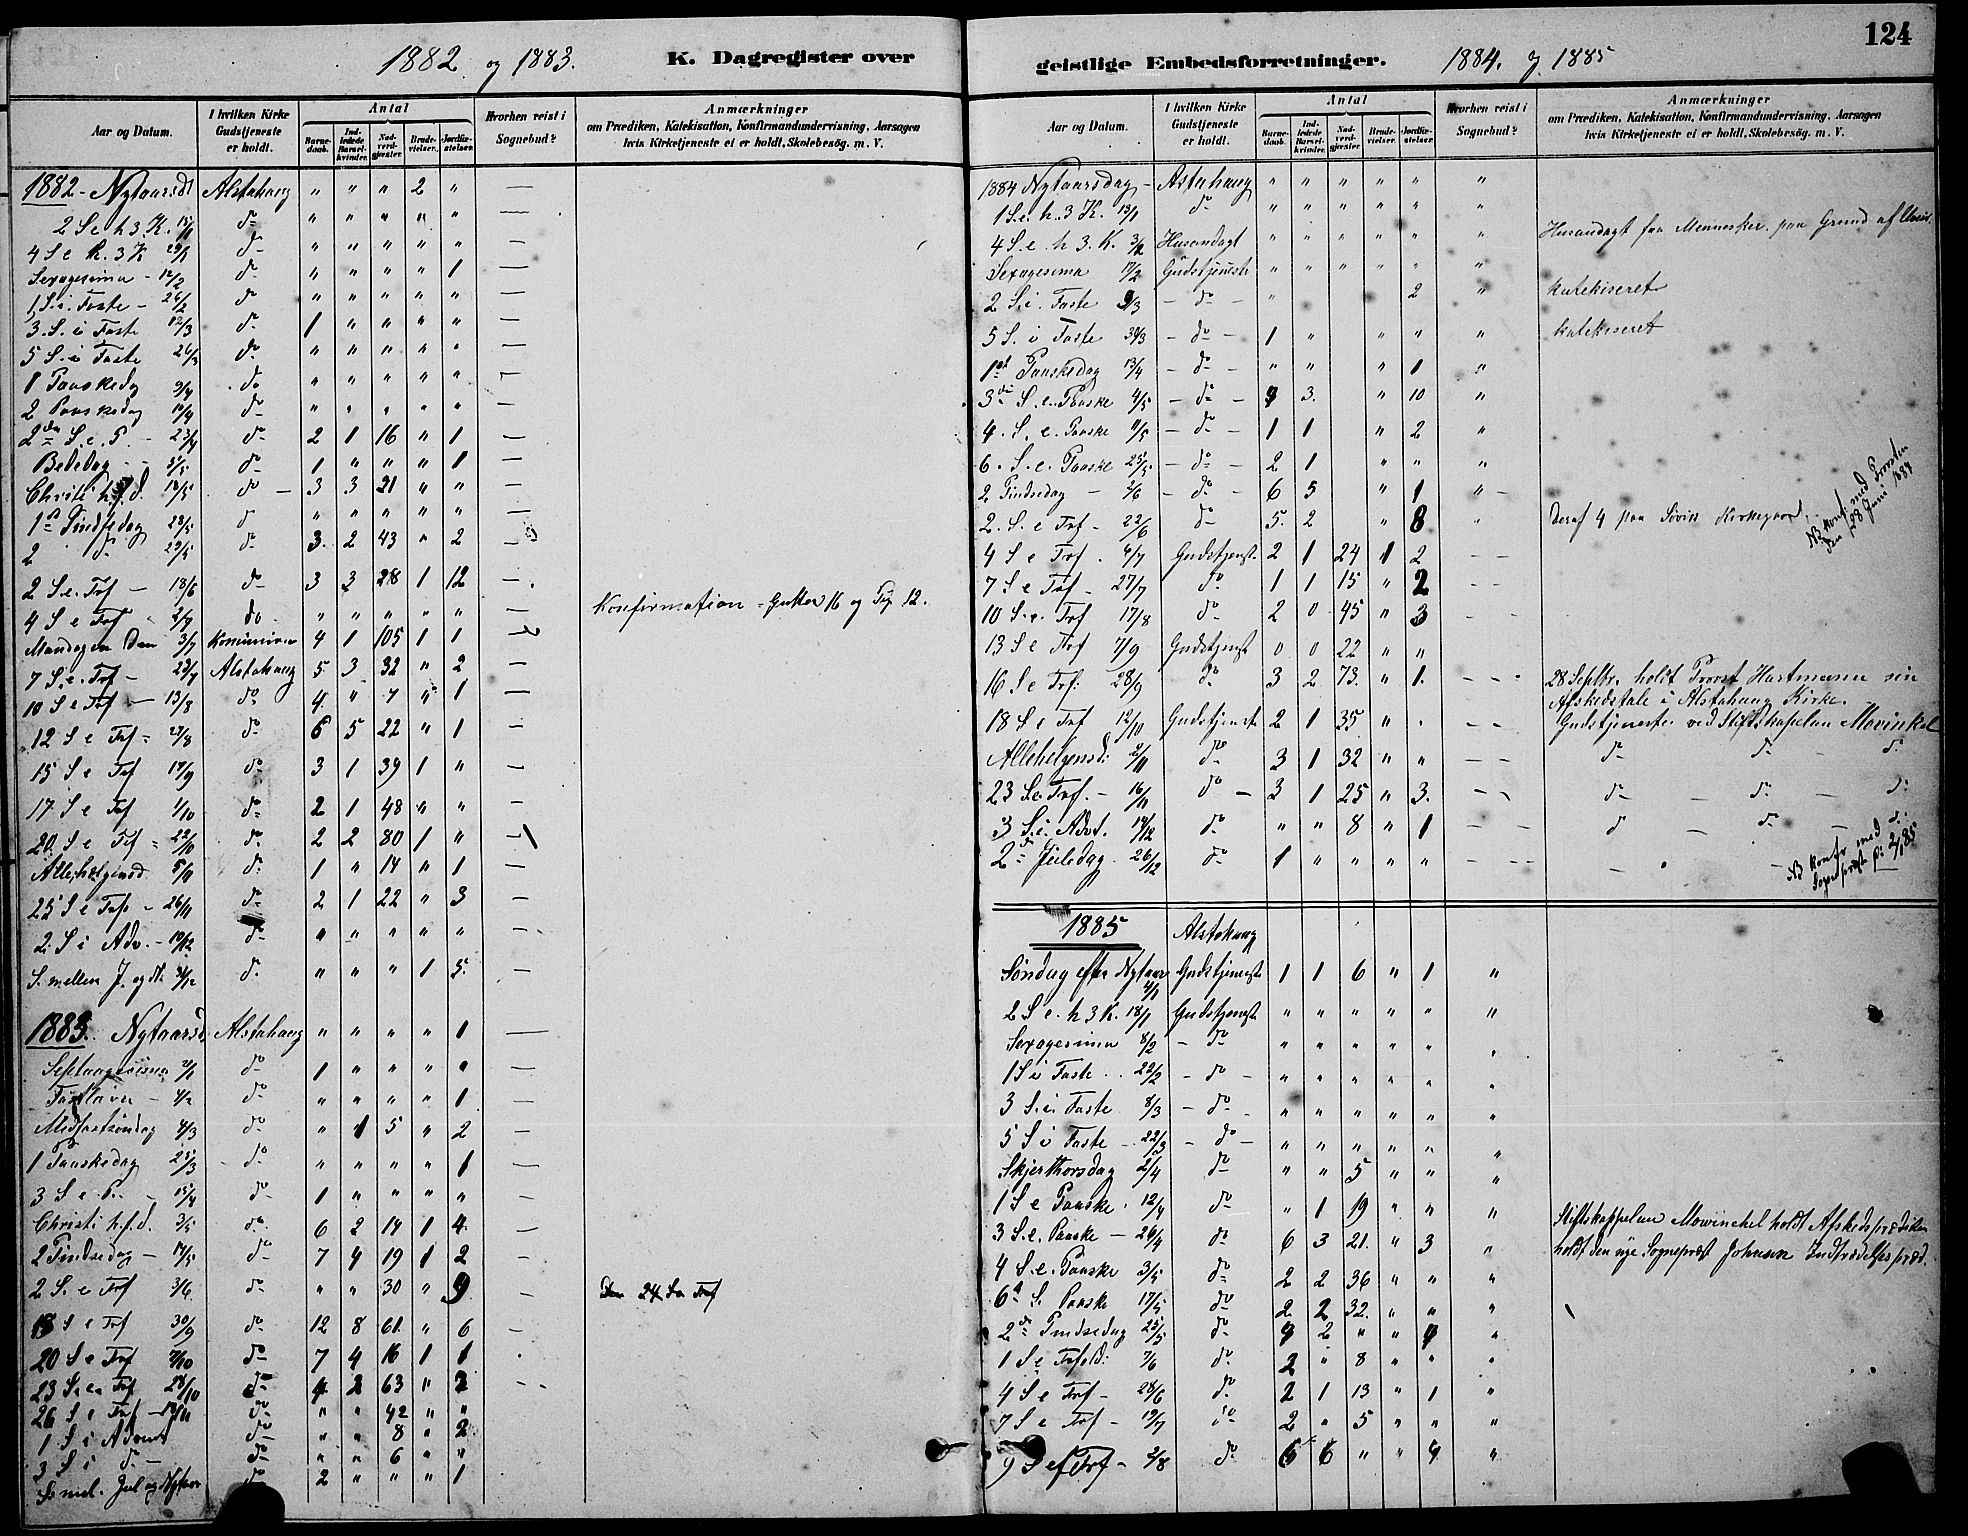 124
1882 og 1883. K. Dagregister over
Aar og Datum. I hvilken Kirke Gudstjeneste er holdt. Antal Barnedaab. Indledede Barselkvinder. Nadverdgjæster. Brudevielser. Jordfæstelser. Hvorhen reist i Sognebud? Anmærkninger om Prædiken, Katekisation, Konfirmandundervisning, Aarsagen hvis Kirketjeneste ei er holdt, Skolebesög. m. V.
1882 - Nytaarsd. Alstahaug " " " 2 " —
2 S e h 3 K. 15/1 do " " " " " —
4 S e h. 3 K 29/1 do " " " " " —
Sexagesima - 12/2 do " " " " 1 —
1 S. i. Faste - 26/2 do " " " " " —
3. S. i Faste 12/3 do 1 " " " " —
5 S. i Faste 26/3 do " " " " " —
1 Paaskedag 9/4 do " " " " " —
2 Paaskedag 10/4 do " " " " " —
2den S. e. P. - 23/4 do 2 1 16 " 1 —
Bededag - 5/5 do 1 " " " 1 —
Christi h.f.d. 18/5 do — 3 3 21 " " —
1ste Pindsedag 28/5 do " " " " " —
2 do 29/5 do 3. 2 43 " 2 —
2 S. e. Trf — 18/6 do 3 3 28 1 12 —
4 S e Trf 2/7 do " " " " " — Konfirmation - Gutter 16 og Pig. 12.
Mandagen den 3/7 Komunion 4 1 105 1 1 —
7 S. e. Trf — 23/7 Alstahaug 5 3 32 " 2 —
10 S e Trf — 13/8 do 4. " 7 " 1 —
12 S e Trf - 27/8 do 6 5 22 " 1 —
15 S e Trf 17/9 do 3 1 39 1 " —
17. S e Trf 1/10 do 2 1 48 " " —
20. S e Trf - 22/10 do 2 2 80 1 " —
Allehelgensd. 5/11 do 1 " 14 " 1 —
25 S e Trf. - 26/11 do 2 1 22 " 3 —
2. S i Adv. - 10/12 do " " " " " —
S. mellem J. og N. 31/12 do " " " 1 5. —
1883. Nytaarsd. Alstahaug " " " " 1 —
Septuagesima 21/1 do 1 " " " " —
Fastelavn - 4/2 do " " " " 1 —
Midfastsöndag 4/3 do " 1 5 " 2 —
1 Paaskedag 25/3 - do " " " " 1 —
3 S e P. - 15/4 do 1 " " " " —
Christi h.f.d. 3/5 do 6 2 14 1 4. —
2 Pindsedag — 14/5 do 7 4 19 1 2 —
2 S. e Trf 3/6 do " " 30 " 9 — Den 24 Se Trf
18 S e Trf 30/9 do 12 8 61. " 6 —
20 S e Trf 7/10 do 7 4 16 1 1 .
23 S. e. Trf 28/10 do 4 2 63 " 2 - -
26 S e Trf — 18/11 do " " 42 " "
1 S i Advent do " " 8 " 2
3 S i do — do " " 6 " "
S. mel. Jul og Nytaar do 2 " " " 1
geistlige Embedsforretninger. 1884. og 1885
Aar og Datum. I hvilken Kirke Gudstjeneste er holdt. Antal Barnedaab. Indledede Barselkvinder. Nadverdgjæster. Brudevielser. Jordfæstelser. Hvorhen reist i Sognebud? Anmærkninger om Prædiken, Katekisation, Konfirmandundervisning, Aarsagen hvis Kirketjeneste ei er holdt, Skolebesög. m. V.
1884 Nytaarsdag - Alstahaug " " " " " "
1 S. e. h. 3 K. 13/1 do " " " " " "
4 S. e. h 3. K. 3/2 Husandagt " " " " " " Husandagt faa Mennesker paa Grund af
Sexagesima 17/2 Gudstjeneste " " " " " "
2 S. i. Faste 9/3 - do - " 2 " Katekiseret
5 S. i Faste 30/3 - do - 1 " " " " Katekiseret
1st Paaskedag 13/4 - do - " " " 1 "
3die S. e. Paaske 4/5 - do - 9 3. " 10 "
4. S. e. Paaske 11/5 - do - 1 1 " 2 "
6. S. e. Paaske 25/5 - do - 2 1 " " "
2 Pindsedag — 2/6 - do - 6 5 " 1 " -
2. S. e Trf - 22/6 do 5. 2 " 8 " Deraf 4 paa Kirkegaard. NB Konf. med Provsten den 28 Juni 1884
4 S e Trf. 6/7 Gudstjenst. 2 1 24 1 2 - -
7 S e Trf - 27/7 do 1 1 15 " 2 - -
10 S. e. Trf 17/8 do 2 0 45 " 3 - -
13 S e Trf 7/9 Gudstjenst 0 0 22 " "
16 S e Trf: 28/9 do 3 2 73. " 1. - - 28 Septbr. holdt Provst Hartmann sin
Afskedstale i Alstahaug Kirke.
18 S e Trf 12/10 Gudstjenste 2 1 35 " . - - Gudstjeneste ved Stiftskapelan Movinkel
Allehelgensd: 2/11 do 3 1 32 " " - - do - do - do
23 S. e. Trf. - 16/11 do — 3 1 25 " 3. - - do - do - do
3 S. i. Advt. 14/12 do " " 8 " 1 - - do - do - do
2d Juledag. 26/12 do 1 " " " " - - NB konfr med Sogneprest 2/1 85
1885 Alstahaug
Söndag efter Nytaar 4/1 Gudstjenest 1 1 6 " 1 "
2 S e. h 3 K. 18/1 Gudstjenest. " " " " " "
Sexagesima 8/2 - do " " " " " "
1 S i Faste .. 22/2 - do - " " " " " "
3 S. i. Faste 8/3 - do - " " " " " "
5 S i Faste - 22/3 - do - " " " " " "
Skjerthorsdag 2/4 do " " 5 " " "
1 S e Paaske . 12/4 do " 1 19 " " "
3 S. e. Paaske — 26/4 do 6 3 21. " 3 " Stiftskappelan Mowinckel holdt Afskedsprædiken
4 S. e. Paaske 3/5 do 2 2 36 " " " holdt den nye Sogneprest Johnsen Indtrædelsespræd.
6te S. Paaske 17/5 do 2 2 32. " " "
2den Pindsedag 25/5 do 4 2 " " 4 "
1 S. e Trfold: 7/6 do 2 " 8 " " "
4 S e Trf - 28/6 do 2 1 13 " 1 "
7 S e Trf - 19/7 do 2 " 5 " " "
9 S ef Trf - 2/8 do 6 6 " " 4 "